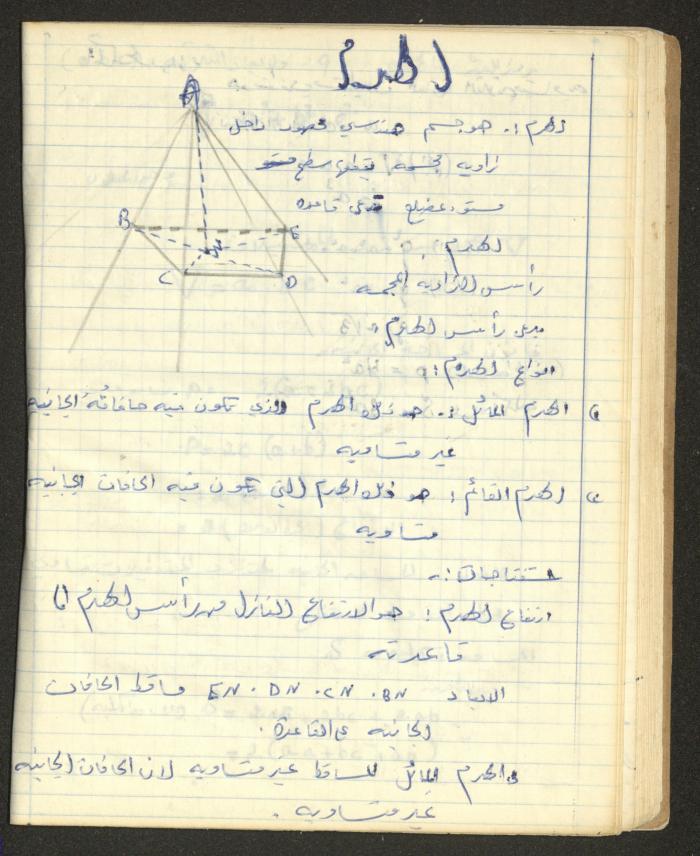 الهرم
A
الهرم :. هو جسم هندسي محصور داخل
زاويه مجسمه يقطعها سطح
مستو مضلع تدعى قاعدة
الهرم .
رأس الزاويه المجسمه
يدعى رأس الهرم .
B E
N
C D
انواع الهرم :
١) الهرم المائل :. هو ذلك الهرم الذي تكون فيه حافاته الجانبيه
غير متساويه
٢) الهرم القائم : هو ذلك الهرم التي تكون فيه الحافات الجانبيه
متساويه
استنتاجات :.
ارتفاع الهرم : هو الارتفاع النازل من رأس الهرم الى
قاعدته
الابعاد BN . CN . DN . EN مساقط الحافات
الجانبيه على القاعدة .
الهرم المائل المساقط غير متساويه لان الحافات الجانبيه
غير متساويه .